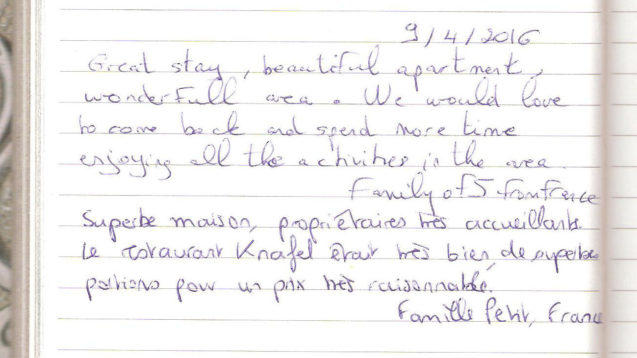 9/4/2016
Great stay, beautiful apartment,
wonderfull area. We would love
to come back and spend more time
enjoying all the activities in the area.
Family of 5 from france
Superbe maison, propriétaires très accueillants.
Le restaurant Knafel était très bien, de superbes
portions pour un prix très raisonnable.
Famille Petit, France